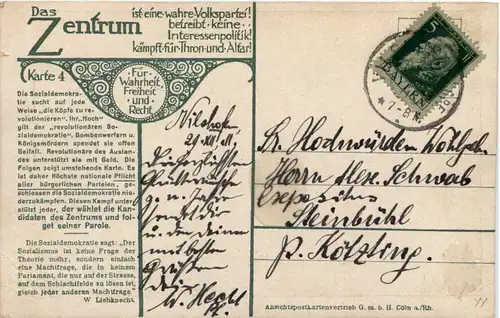 Das Zentrum
ist eine wahre Volkspartei!
betreibt keine
Interessenpolitik!
kämpft für Thron und Altar!
Karte 4
Für
Wahrheit,
Freiheit
und
Recht
Die Sozialdemokra-
tie sucht auf jede
Weise „die Köpfe zu re-
volutionieren". Ihr „Hoch"
gilt der „revolutionären So-
zialdemokratie". Bombenwerfern u.
Königsmördern spendet sie offen
Beifall. Revolutionen des Auslan-
des unterstützt sie mit Geld. Die
Folgen zeigt umstehende Karte. Es
ist daher höchste nationale Pflicht
aller bürgerlichen Parteien, ge-
schlossen die Sozialdemokratie nie-
derzukämpfen. Diesen Kampf unter-
stützt jeder, der wählet die Kan-
didaten des Zentrums und fol-
get seiner Parole.
Die Sozialdemokratie sagt: „Der
Sozialismus ist keine Frage der
Theorie mehr, sondern einfach
eine Machtfrage, die in keinem
Parlament, die nur auf der Strasse,
auf dem Schlachtfelde zu lösen ist,
gleich jeder anderen Machtfrage."
W. Liebknecht.
Vilshofen
29.XII.11.
Die herzlichsten
Glückwünsche
z. n. Jahre
sendet dir
u. den deinen
mit besten
Grüßen
dein
5
BAYERN
7-8 N.
Sr. Hochwürden Wohlgeb.
Herrn Alex. Schwab
Expositus
Steinbühl
p. Kötzting.
Ansichtspostkartenvertrieb G. m. b. H. Cöln a./Rh.